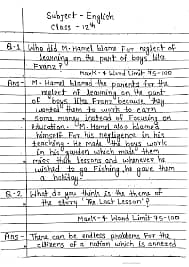 Subject - English
Class - 12th
Q-1 Who did M. Hamel blame For neglect of
learning on the part of boys like
Franz?
Mark-4 Word Limit 75-100
Ans- M. Hamel blamed the parents for the
neglect of learning on the part
of boys like Franz because they
wanted them to work to earn
some money instead of Focusing on
Education. M. Hamel also blamed
himself. For his negligence in
teaching. He made the boys work
in his garden which made them
miss their lessons and whenever he
wished to go Fishing, he gave them
a holiday.
Q-2. What do you think is the theme of
the story "The Last Lesson"?
Mark-4 Word Limit 75-100
Ans- There can be endless problems For the
citizens of a nation which is annexed